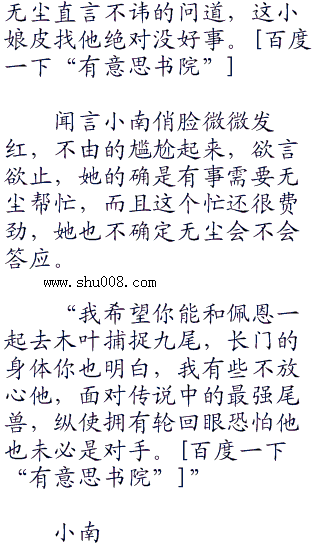 无尘直言不讳的问道，这小
娘皮找他绝对没好事。[百度
一下“有意思书院”]
闻言小南俏脸微微发
红，不由的尴尬起来，欲言
欲止，她的确是有事需要无
尘帮忙，而且这个忙还很费
劲，她也不确定无尘会不会
答应。
www.shu008.com
“我希望你能和佩恩一
起去木叶捕捉九尾，长门的
身体你也明白，我有些不放
心他，面对传说中的最强尾
兽，纵使拥有轮回眼恐怕他
也未必是对手。[百度一下
“有意思书院”]”
小南